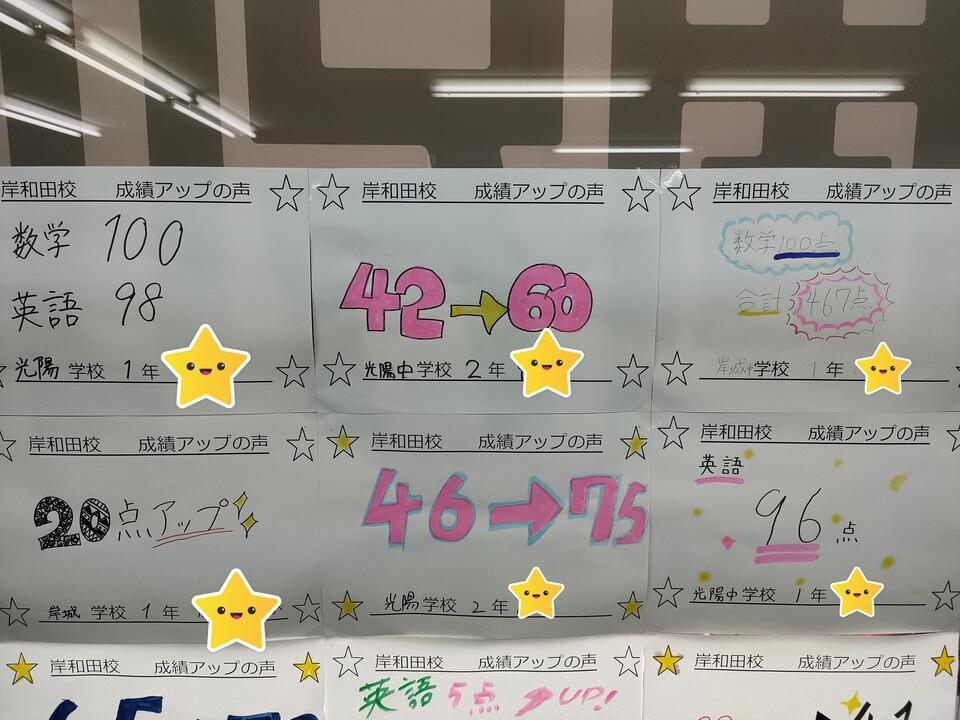 岸和田校 成績アップの声
数学 100
英語 98
光陽 学校 1年
岸和田校 成績アップの声
42→60
光陽中学校 2年
岸和田校 成績アップの声
数学100点
合計 467点
岸城中学校 1年
岸和田校 成績アップの声
20点アップ
岸城 学校 1年
岸和田校 成績アップの声
46→75
光陽学校 2年
岸和田校 成績アップの声
英語
96点
光陽中学校 1年
岸和田校 成績アップの声
岸和田校 成績アップの声
英語5点 UP!
岸和田校 成績アップの声